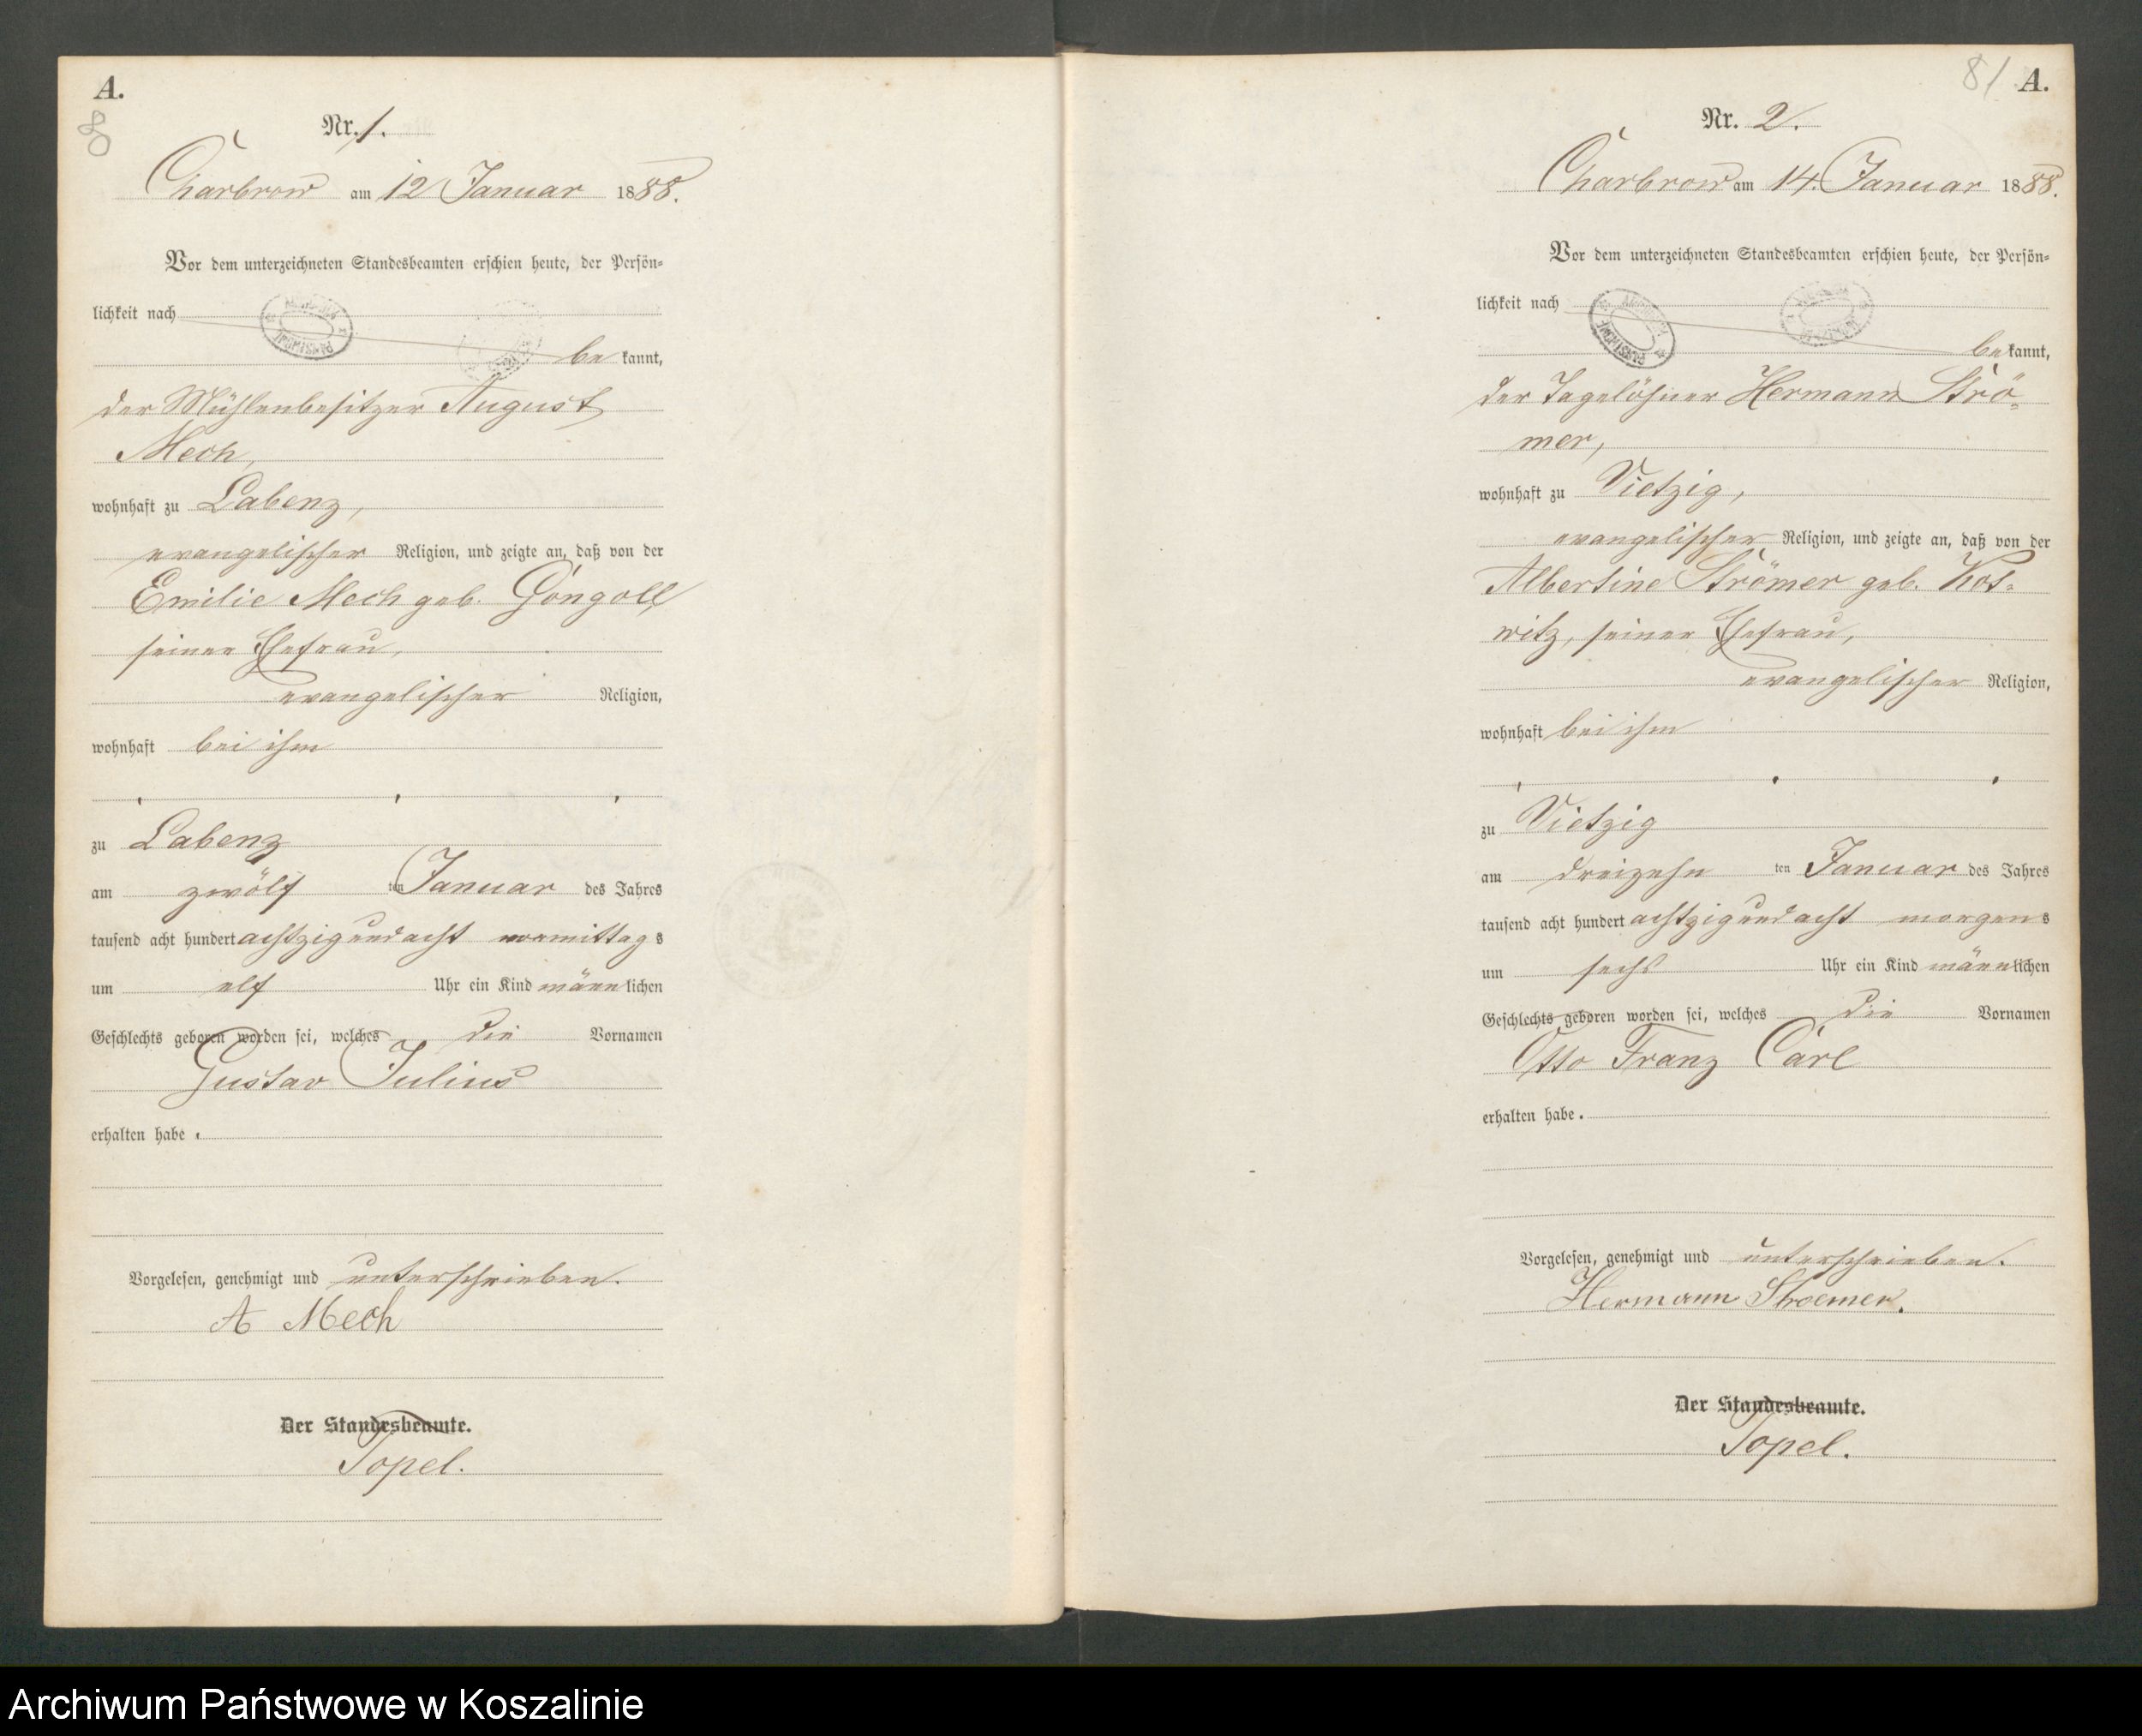 A.
80
Nr. 1.
Charbrow am 12 Januar 1888.
Vor dem unterzeichneten Standesbeamten erschien heute, der Persön-
lichkeit nach
bekannt,
der Mühlenbesitzer August
Mech,
wohnhaft zu Labenz,
evangelischer Religion, und zeigte an, daß von der
Emilie Mech geb. Göngoll
seiner Ehefrau,
evangelischer Religion,
wohnhaft bei ihm
zu Labenz
am zwölf ten Januar des Jahres
tausend acht hundert achtzigundacht vormittags
um elf Uhr ein Kind männlichen
Geschlechts geboren worden sei, welches die Vornamen
Gustav Julius
erhalten habe.
Vorgelesen, genehmigt und unterschrieben.
A Mech
Der Standesbeamte.
Topel.
81 A.
Nr. 2.
Charbrow am 14. Januar 1888.
Vor dem unterzeichneten Standesbeamten erschien heute, der Persön-
lichkeit nach
bekannt,
der Tagelöhner Hermann Strö-
mer,
wohnhaft zu Vietzig,
evangelischer Religion, und zeigte an, daß von der
Albertine Strömer geb. Kot-
witz, seiner Ehefrau,
evangelischer Religion,
wohnhaft bei ihm
zu Vietzig
am dreizehn ten Januar des Jahres
tausend acht hundert achtzigundacht morgens
um sechs Uhr ein Kind männlichen
Geschlechts geboren worden sei, welches die Vornamen
Otto Franz Carl
erhalten habe.
Vorgelesen, genehmigt und unterschrieben.
Hermann Stroemer.
Der Standesbeamte.
Topel.
Archiwum Państwowe w Koszalinie